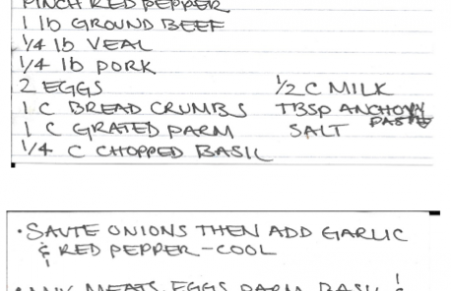 PINCH RED PEPPER
1 lb GROUND BEEF
1/4 lb VEAL
1/4 lb PORK
2 EGGS
1/2 C MILK
1 C BREAD CRUMBS
TBSP ANCHOVY PASTE
1 C GRATED PARM
SALT
1/4 C CHOPPED BASIL
• SAUTE ONIONS THEN ADD GARLIC
& RED PEPPER - COOL
MEATS, EGGS, PARM, BASIL &